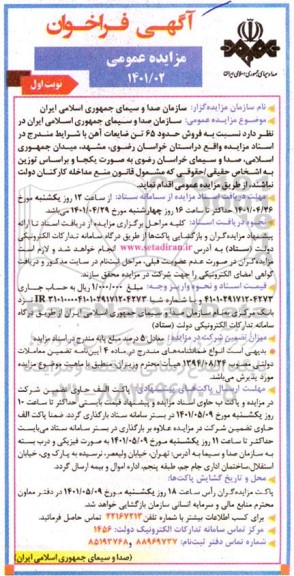 آگهی فراخوان
مزایده عمومی
۱۴۰۱/۰۲
صدا و سیمای جمهوری اسلامی ایران
نوبت اول
نام سازمان مزایده‌گزار: سازمان صدا و سیمای جمهوری اسلامی ایران
موضوع مزایده عمومی: سازمان صدا و سیمای جمهوری اسلامی ایران در
نظر دارد نسبت به فروش حدود ۶۵ تن ضایعات آهن با شرایط مندرج در
اسناد مزایده واقع دراستان خراسان رضوی، مشهد، میدان جمهوری
اسلامی، صدا و سیمای خراسان رضوی به صورت یکجا و براساس توزین
به اشخاص حقیقی/حقوقی که مشمول قانون منع مداخله کارکنان دولت
نباشند، از طریق مزایده عمومی اقدام نماید.
مهلت دریافت اسناد مزایده از سامانه ستاد: از ساعت ۱۲ روز یکشنبه مورخ
۱۴۰۱/۰۴/۲۶ حداکثر تا ساعت ۱۶ روز چهارشنبه مورخ ۱۴۰۱/۰۴/۲۹ می‌باشد.
نحوه دریافت اسناد: کلیه مراحل برگزاری مزایده از دریافت اسناد تا ارائه
پیشنهاد مزایده‌گران و بازگشایی پاکت‌ها از طریق درگاه سامانه تدارکات الکترونیکی
دولت (ستاد) به آدرس www.setadiran.ir انجام خواهد شد و لازم است
مزایده‌گران در صورت عدم عضویت قبلی، مراحل ثبت‌نام در سایت مذکور و دریافت
گواهی امضای الکترونیکی را جهت شرکت در مزایده محقق سازند.
قیمت اسناد و نحوه واریز وجه: مبلغ ۱/۰۰۰/۰۰۰ ریال به حساب جاری
بانک مرکزی بنام سازمان صدا و سیمای جمهوری اسلامی ایران از طریق درگاه
سامانه تدارکات الکترونیکی دولت (ستاد)
میزان تضمین شرکت در مزایده: معادل ۵ درصد مبلغ پایه مندرج در اسناد مزایده
بدیهی است انواع ضمانتنامه‌های مندرج در ماده ۴ آیین‌نامه تضمین معاملات
دولتی مصوب ۱۳۹۴/۰۸/۲۴ هیأت محترم وزیران، منطبق با شرایط و موضوع مزایده
مورد پذیرش می‌باشد.
مهلت ارسال پاکت‌های پیشنهادی: پاکت الف حاوی تضمین شرکت
در مزایده و پاکت ب حاوی اسناد مزایده و پیشنهاد قیمت بایستی حداکثر تا ساعت ۱۰
روز یکشنبه مورخ ۱۴۰۱/۰۵/۰۹ در بستر سامانه ستاد بارگذاری گردد. ضمنا پاکت الف
حاوی تضمین شرکت در مزایده علاوه بر بارگذاری در بستر سامانه ستاد می‌بایست
حداکثر تا ساعت ۱۱ روز یکشنبه مورخ ۱۴۰۱/۰۵/۰۹ به صورت فیزیکی و درب بسته
به سازمان صدا و سیما به آدرس: تهران، خیابان ولیعصر، نرسیده به پارک وی، خیابان
استقلال، ساختمان اداری جام جم، طبقه پنجم، اداره اموال و بیمه ارسال گردد.
محل و تاریخ گشایش پاکت‌ها:
پاکت مزایده‌گران رأس ساعت ۱۸ روز یکشنبه مورخ ۱۴۰۱/۰۵/۰۹ در دفتر معاون
محترم منابع مالی و سرمایه انسانی سازمان بازگشایی خواهد شد.
برای کسب اطلاعات بیشتر با شماره تلفن ۲۲۱۶۷۲۱۳ تماس حاصل فرمائید.
مرکز تماس سامانه تدارکات الکترونیک دولت: ۱۴۵۶
شماره تماس دفتر ثبت‌نام: ۸۸۹۶۹۷۳۷ و ۸۵۱۹۳۷۶۸
(صدا و سیمای جمهوری اسلامی ایران)